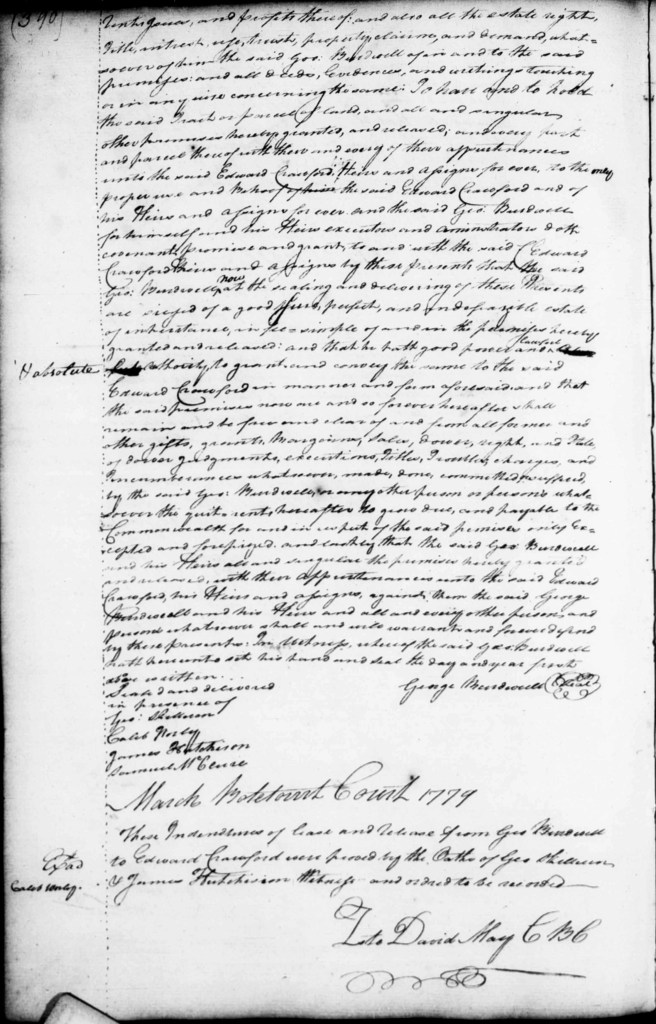 (390)
and profits thereof: and also all the estate right,
Title, interest, use, trust, property, claim, and demand, what-
soever of him the said Geo: Burdwell of in and to the said
premises: and all deeds, Evidences, and writings touching
or in any wise concerning the same: To have and to hold
the said Tract or parcel of land, and all and singular
other premises hereby granted, and released; and every part
and parcel thereof with there and every of there appurtenances
unto the said Edward Crawford, Heirs and assigns for ever, to the only
proper use and behoof of the said Edward Crawford and of
his Heirs and assigns for ever and the said Geo: Burdwell
for himself and his Heirs executors and administrators doth
covenant, promise and grant, to and with the said Edward
Crawford Heirs and assigns by these presents that the said
Geo: Burdwell now at the sealing and delivering of these Presents
are siezed of a good, sure, perfect, and indefeazible estate
of inheritance, in fee simple of and in the premises hereby
granted and released: and that he hath good power and lawful
& absolute authority to grant and convey the same to the said
Edward Crawford in manner and form aforesaid: and that
the said premises now are and so forever hereafter shall
remain and be free and clear of and from all former and
other gifts, grants, Bargains, Sales, dower, right, and Title
of dower judgments, executions, Titles, Troubles, charges, and
Incumberances whatsoever, made, done, committed or suffered,
by the said Geo: Burdwell, or any other person or persons what-
soever the quitrents, hereafter to grow due, and payable to the
Commonwealth for and in respect of the said premises only Ex-
cepted and foreprized. and lastly that the said Geo Burdwell
and his Heirs all and singular the premises hereby granted
and released, with there appurtenances unto the said Edward
Crawford, his Heirs and assigns, against, them the said George
Burdwell and his Heirs and all and every other person, and
persons whatsoever shall and will warrant and forever defend
by these presents: In Witness, whereof the said Geo: Burdwell
hath hereunto set his hand and seal the day and year first
above written...
Seald and delivered
George Burdwell (Seal)
in presence of
Geo: Skillern
Caleb Worly
James Hutchison
Samuel McClure
March Botetourt Court 1779
These Indentures of lease and release from Geo Burdwell
to Edward Crawford were proved by the Oaths of Geo Skillern
& James Hutchison Witness and ordered to be recorded
Caleb Worley.
Teste David May C B C